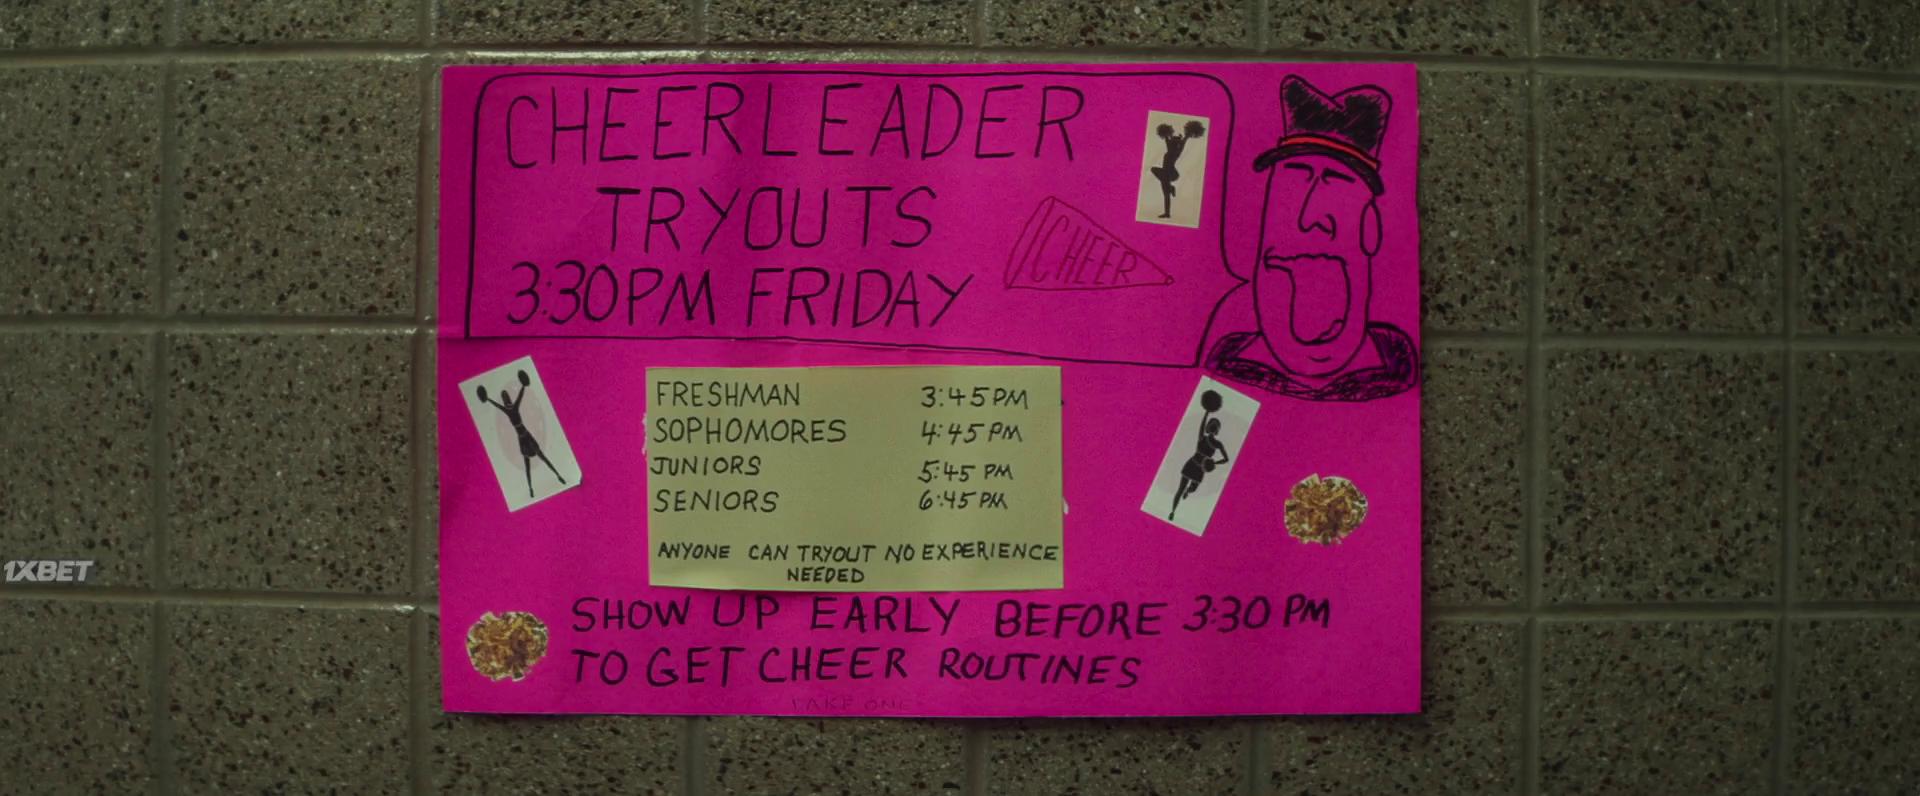 CHEERLEADER
TRYOUTS
3:30PM FRIDAY
CHEER
FRESHMAN 3:45PM
SOPHOMORES 4:45 PM
JUNIORS 5:45 PM
SENIORS 6:45 PM
ANYONE CAN TRYOUT NO EXPERIENCE
NEEDED
SHOW UP EARLY BEFORE 3:30 PM
TO GET CHEER ROUTINES
TAKE ONE
1XBET